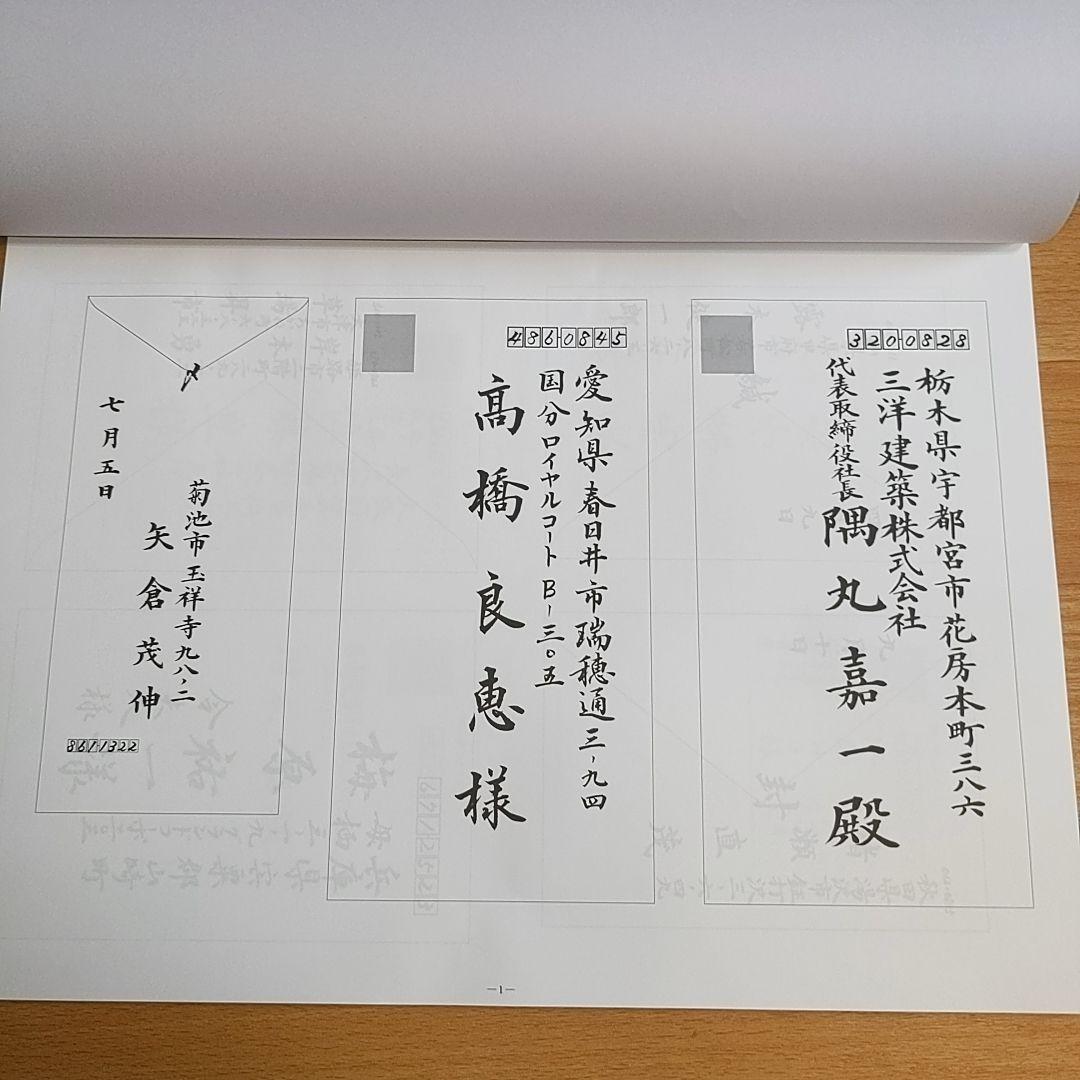 320-0828
栃木県宇都宮市花房本町三八六
三洋建築株式会社
代表取締役社長
隅丸嘉一殿
486-0845
愛知県春日井市瑞穂通三-九四
国分ロイヤルコートB-三〇五
高橋良恵様
〆
七月五日
菊池市玉祥寺九八-二
矢倉茂伸
861-1322
—1—